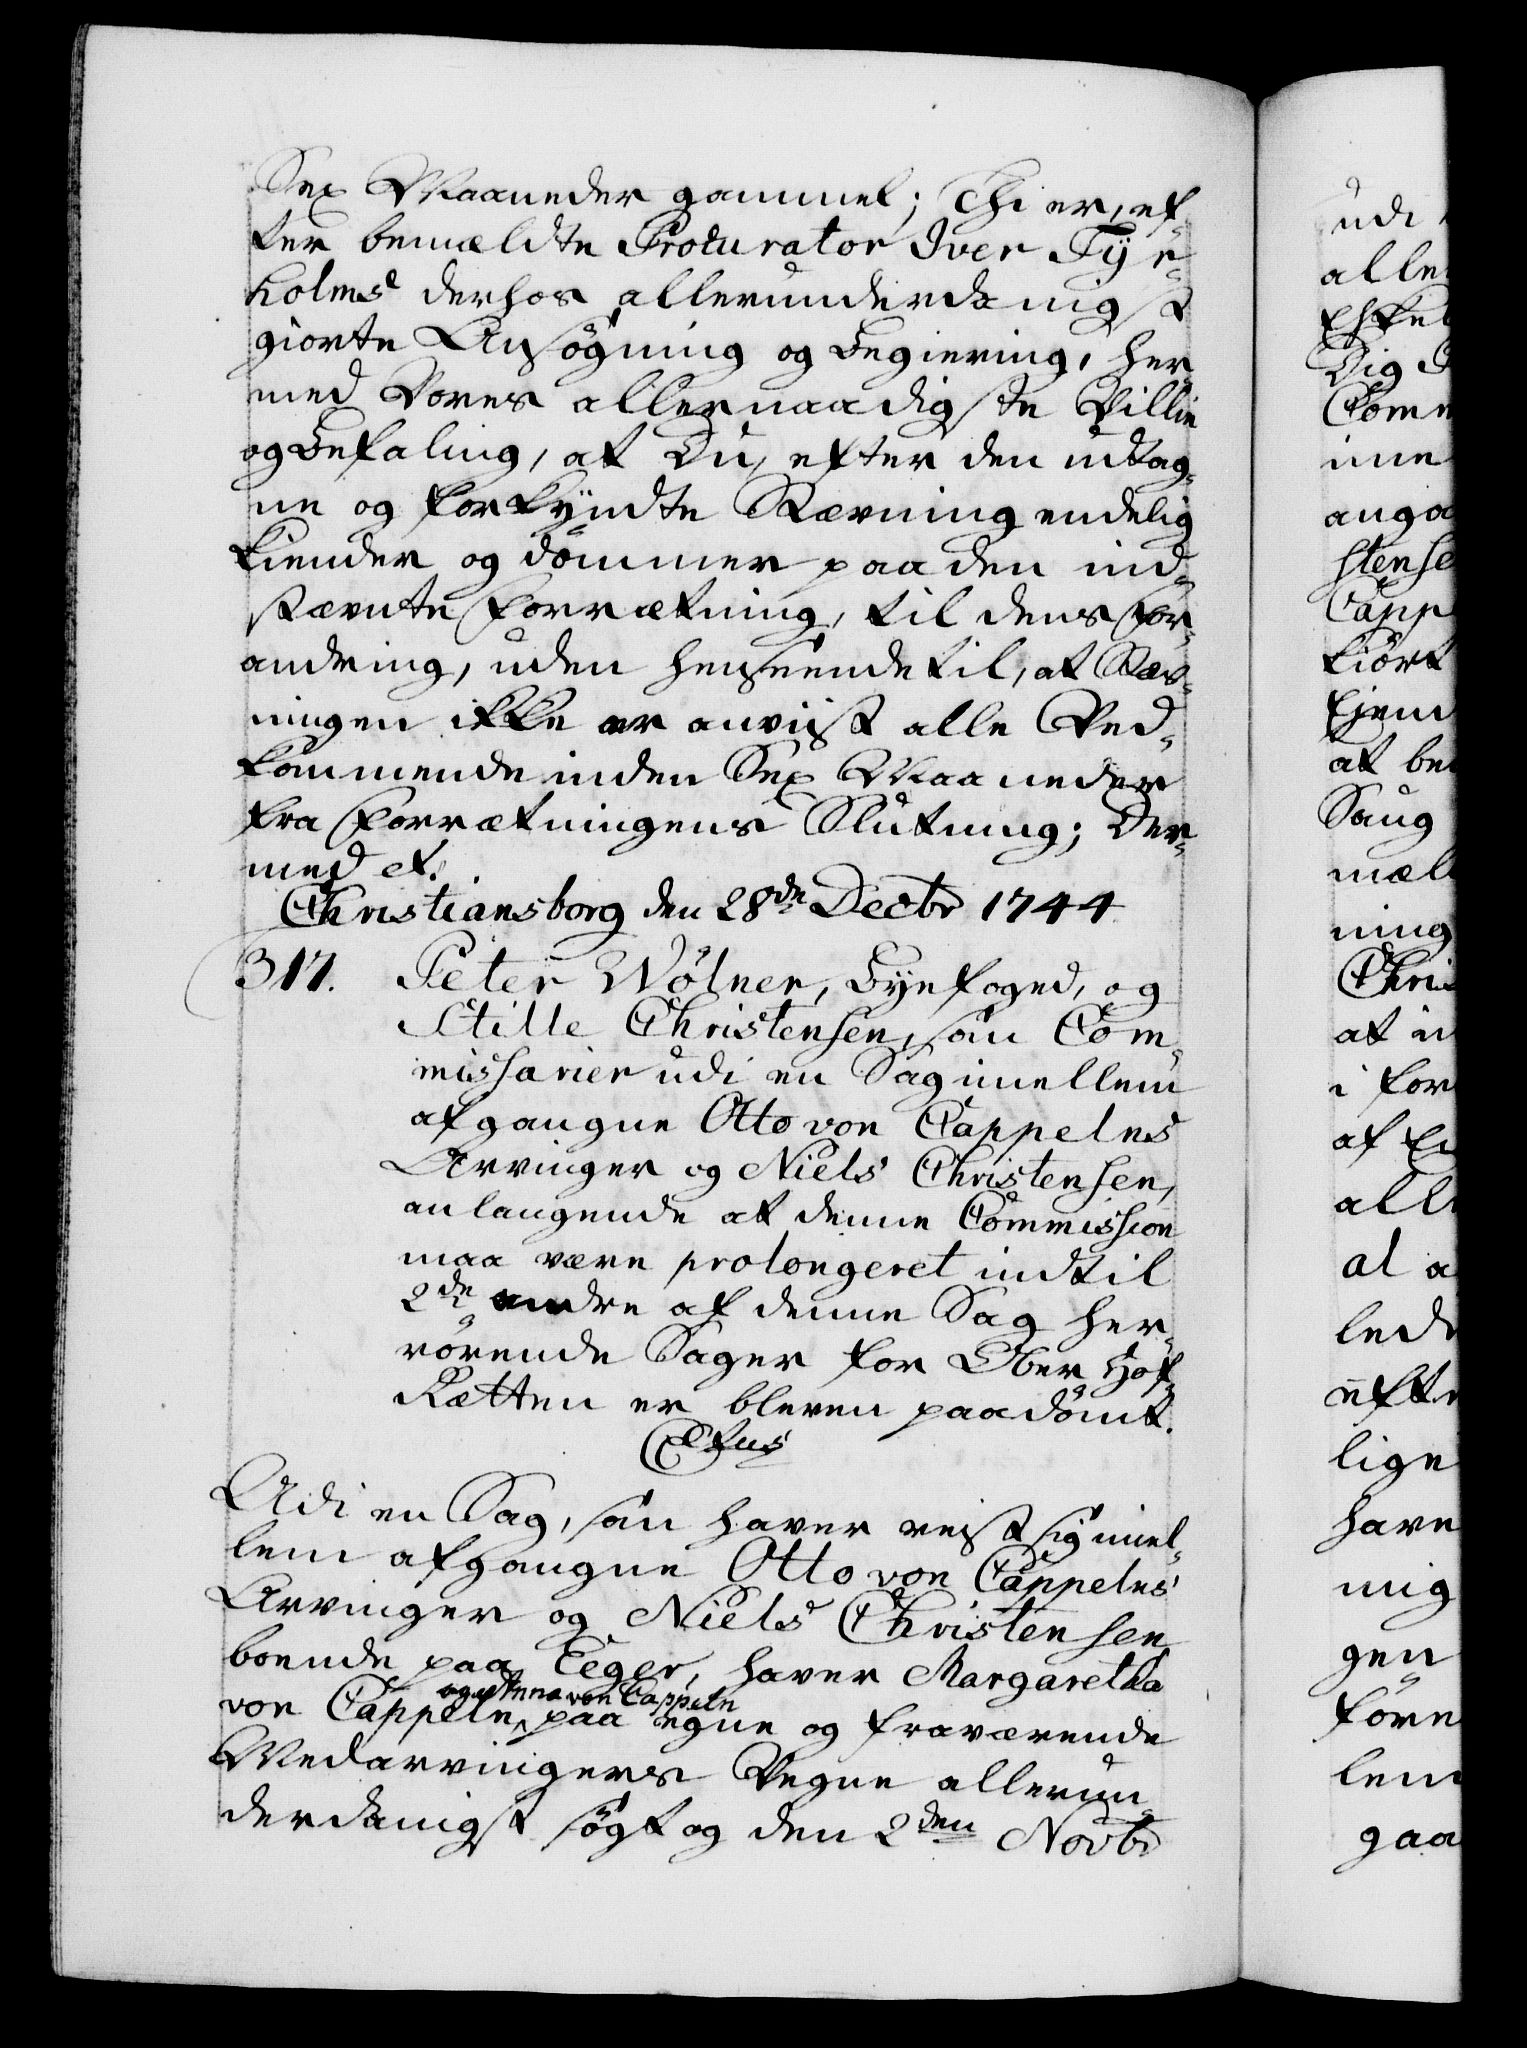 Sex Maaneder gammel; Thi er, ef-
ter bemældte Procurator Iver Tyr-
holms derhos allerunderdanigst
giorte Ansøgning og Begiering, her-
med Vores allernaadigste Villie
og Befaling, at Du, efter den udtag-
ne og forkyndte Stævning endelig
kiender og dømmer paa den ind-
stævnte Forretning, til dens For-
andring, uden henseende til, at Stæv-
ningen ikke er anviist alle Ved-
kommende inden Sex Maaneder
fra Forretningens Slutning; Der-
med etc.
Christiansborg den 28de Decbr 1744
317. Peter Wølner, Byefoged, og
Stille Christensen, som Com-
missarier udi en Sag imellem
afgangne Otto von Cappelns
Arvinger og Niels Christensen,
anlangende at denne Commission
maa være prolongeret indtil
2de andre af denne Sag her-
rørende Sager for Ober Hof-
Retten er bleven paadømt.
Udi en Sag, som haver reist sig imel-
lem afgangne Otto von Cappelns
Arvinger og Niels Christensen
boende paa Eeger, haver Margaretha
og Anna von Cappeln
von Cappeln, paa egne og fraværende
Medarvingers Vegne allerun-
derdanigst søgt og den 2den Novbr
udi
alle
Dig
Comm
ime
anga
stense
Capp
kiørt
Ejend
at be
Saug
mæl
ning
Chris
at i
i for
af Ei
alle
al a
led
efte
lige
have
mig
gen
føre
lem
gaa